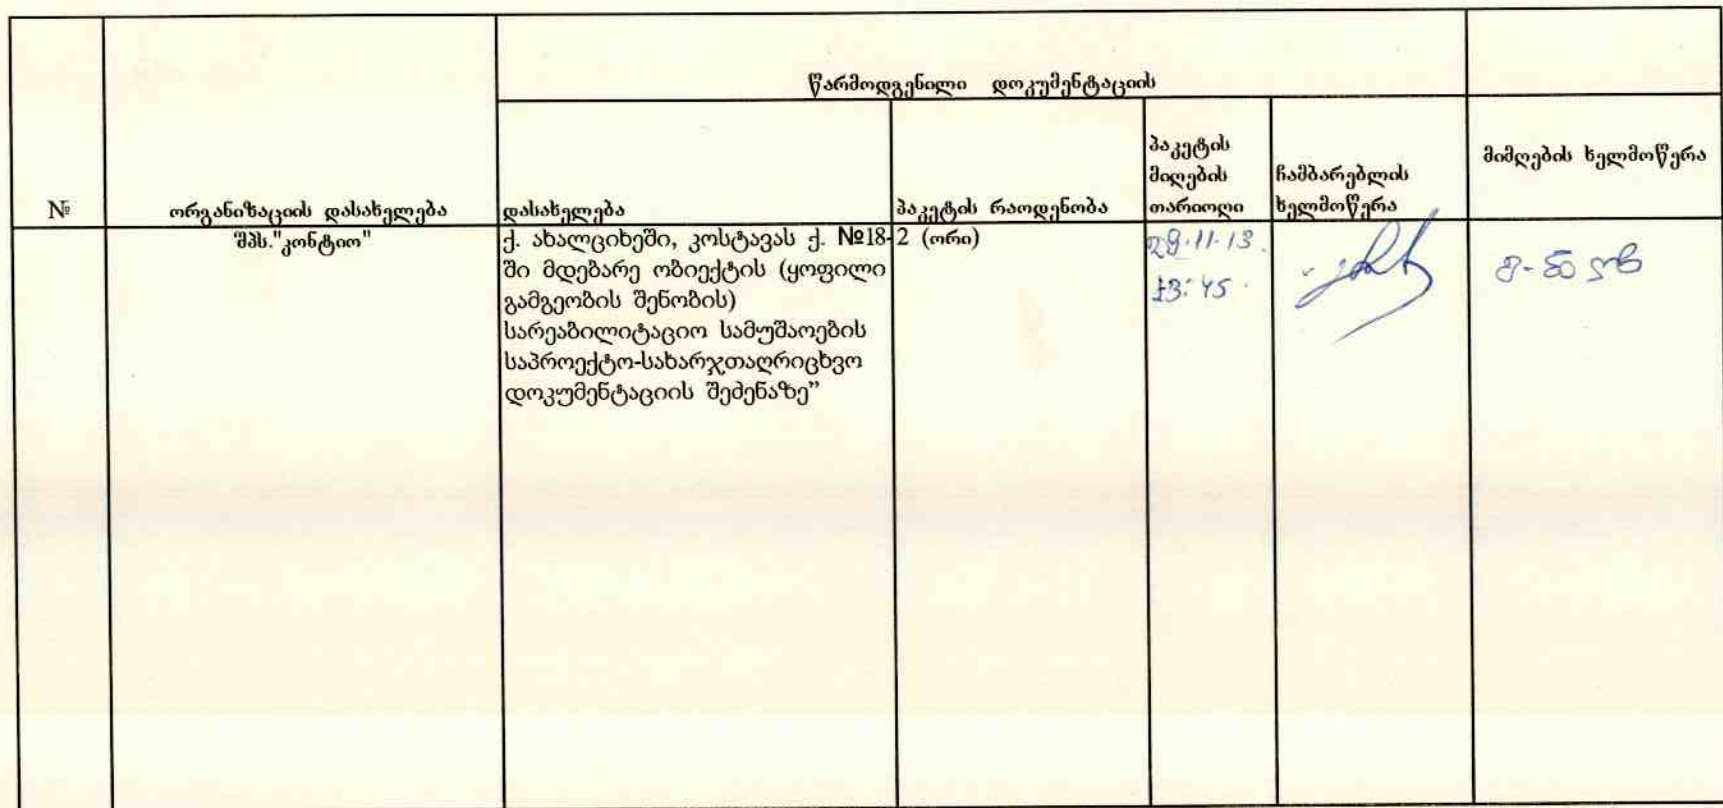 წარმოდგენილი დოკუმენტაციის
№
ორგანიზაციის დასახელება
დასახელება
პაკეტის რაოდენობა
პაკეტის
მიღების
თარიღი
ჩამბარებლის
ხელმოწერა
მიმღების ხელმოწერა
შპს."კონტიო"
ქ. ახალციხეში, კოსტავას ქ. №18-
ში მდებარე ობიექტის (ყოფილი
გამგეობის შენობის)
სარეაბილიტაციო სამუშაოების
საპროექტო-სახარჯთაღრიცხვო
დოკუმენტაციის შეძენაზე”
2 (ორი)
29.11.13.
13:45